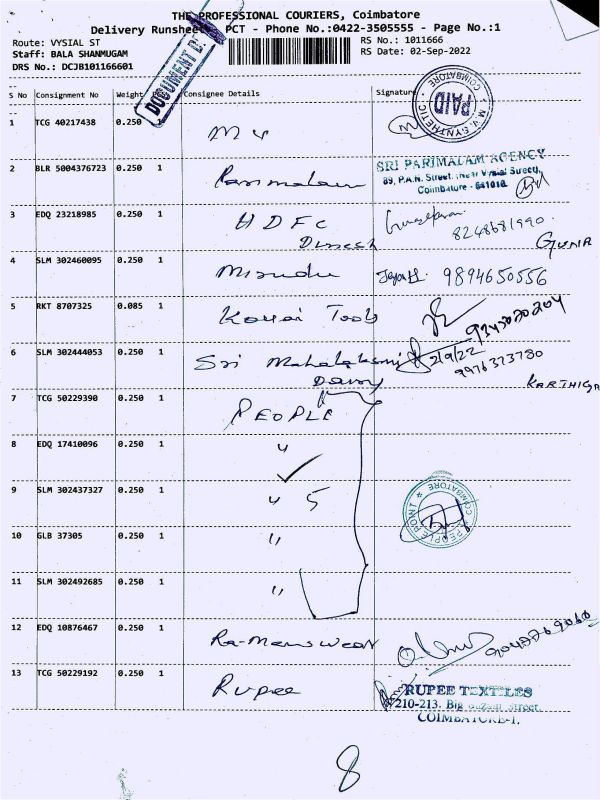 THE PROFESSIONAL COURIERS, Coimbatore
Delivery Runsheet PCT - Phone No.:0422-3505555 - Page No.:1
Route: VYSIAL ST
RS No.: 1011666
Staff: BALA SHANMUGAM
RS Date: 02-Sep-2022
DRS No.: DCJB101166601
DOCUMENT
S No Consignment No Weight Consignee Details Signature
COIMBATORE
PAID
M.V. SYNTHETIC
1 TCG 40217438 0.250 1 M V
2 BLR 5004376723 0.250 1 Parimalam
SRI PARIMALAM AGENCY
89, P.A.N. Street, (near Vysial Street),
Coimbatore - 641018
3 EDQ 23218985 0.250 1 HDFC
Dinesh
8248681990
GUNA
4 SLM 302460095 0.250 1 9894650556
5 RKT 8707325 0.085 1 Kovai Tools
9345020204
6 SLM 302444053 0.250 1 Sri Mahalakshmi
2/9/22
9976373780
KARTHIGA
7 TCG 50229390 0.250 1 PEOPLE
8 EDQ 17410096 0.250 1 "
9 SLM 302437327 0.250 1 " 5
COIMBATORE
PEOPLE POINT
10 GLB 37305 0.250 1 "
11 SLM 302492685 0.250 1 "
12 EDQ 10876467 0.250 1 Ra-Menswear
13 TCG 50229192 0.250 1 Rupee
RUPEE TEXTILES
210-213, Big Bazaar Street,
COIMBATORE-1.
8